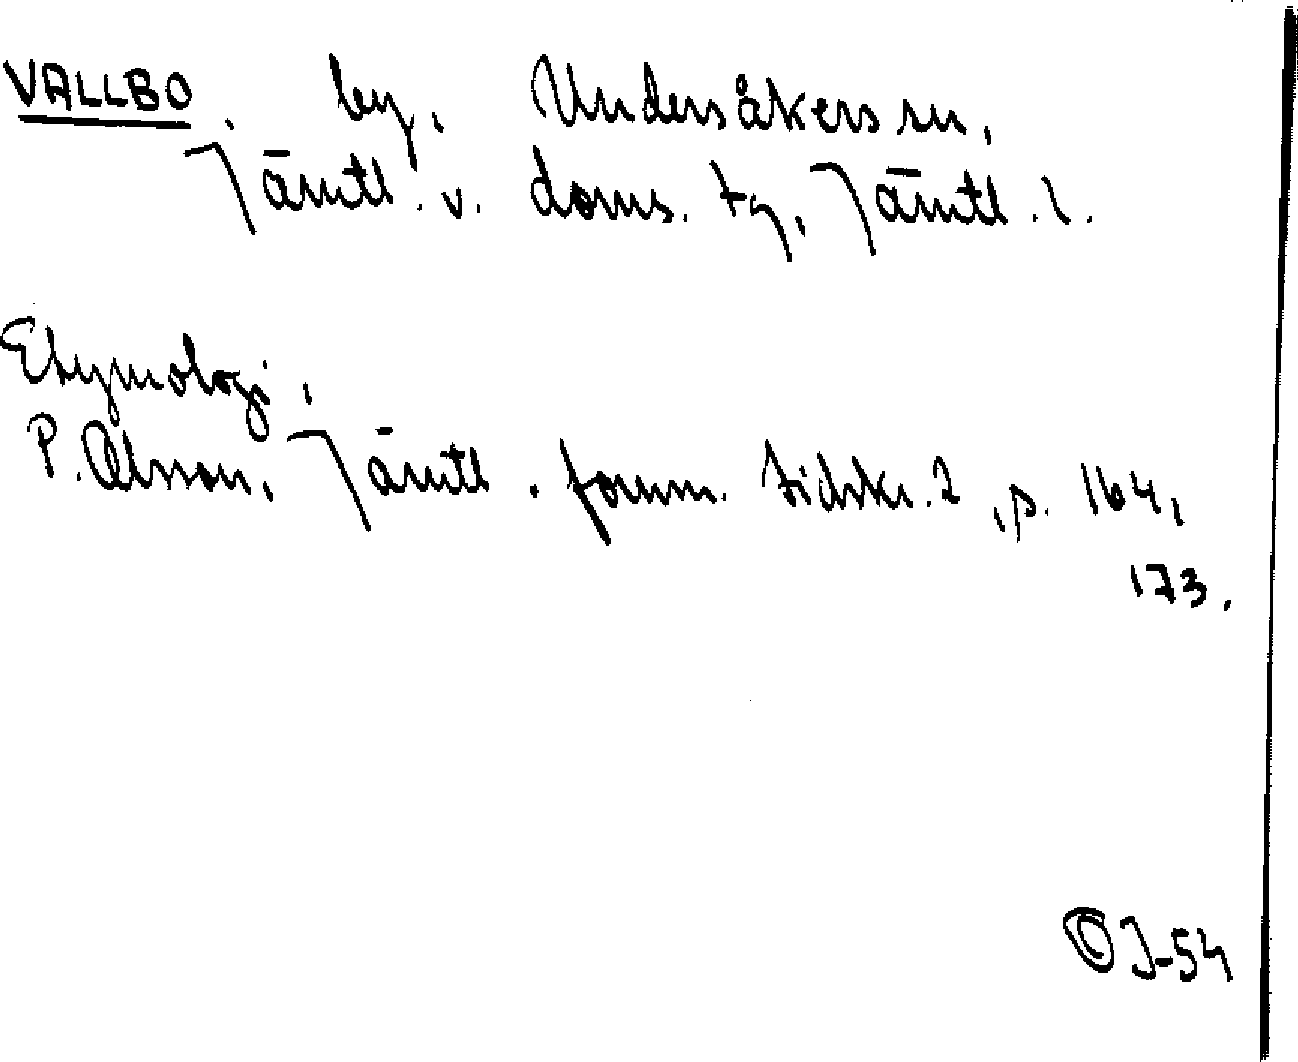 VALLBO, by, Undersåkers sn,
Jämtl. v. doms. tg, Jämtl. l.
Etymologi,
P. Olsson, Jämtl. fornm. tidskr. 2, s. 164,
173.
OJ-54